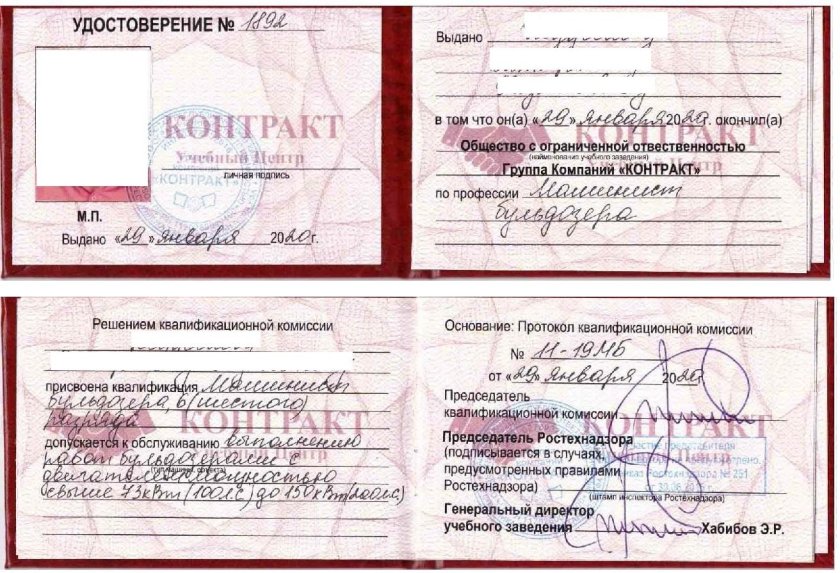 УДОСТОВЕРЕНИЕ № 1892
КОНТРАКТ
Учебный Центр
личная подпись
«КОНТРАКТ»
М.П.
Выдано «29» января 2020г.
Выдано
в том что он(а) «29» января 2020г. окончил(а)
Общество с ограниченной отвественностью
(наименование учебного заведения)
Группа Компаний «КОНТРАКТ»
по профессии Машинист
бульдозера
Решением квалификационной комиссии
присвоена квалификация Машинист
бульдозера, 6 (шестого)
разряда
допускается к обслуживанию выполнению
работ бульдозерами с
двигателем мощностью
свыше 73кВт (100лс) до 150кВт (200лс)
КОНТРАКТ
Основание: Протокол квалификационной комиссии
№ 11-19МБ
от «29» января 2020г.
Председатель
квалификационной комиссии
КОНТРАКТ
Председатель Ростехнадзора
(подписывается в случаях,
предусмотренных правилами
Ростехнадзора)
представителя
Ростехнадзора № 251
(штамп инспектора Ростехнадзора)
Генеральный директор
учебного заведения Хабибов Э.Р.